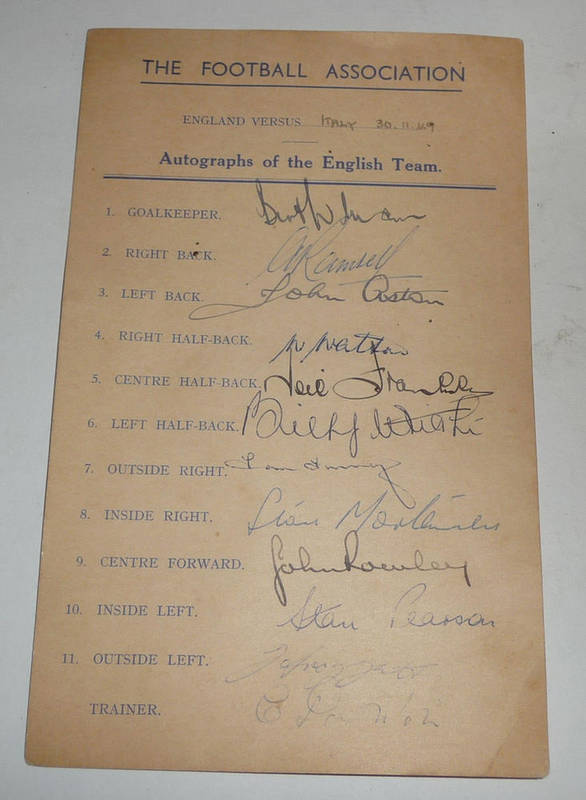 THE FOOTBALL ASSOCIATION
ENGLAND VERSUS ITALY 30.11.49
Autographs of the English Team.
1. GOALKEEPER. Bert Williams
2. RIGHT BACK. A Ramsey
3. LEFT BACK. John Aston
4. RIGHT HALF-BACK. W Watson
5. CENTRE HALF-BACK. Neil Franklin
6. LEFT HALF-BACK. Billy Wright
7. OUTSIDE RIGHT. Tom Finney
8. INSIDE RIGHT. Stan Mortensen
9. CENTRE FORWARD. John Rowley
10. INSIDE LEFT. Stan Pearson
11. OUTSIDE LEFT.
TRAINER.